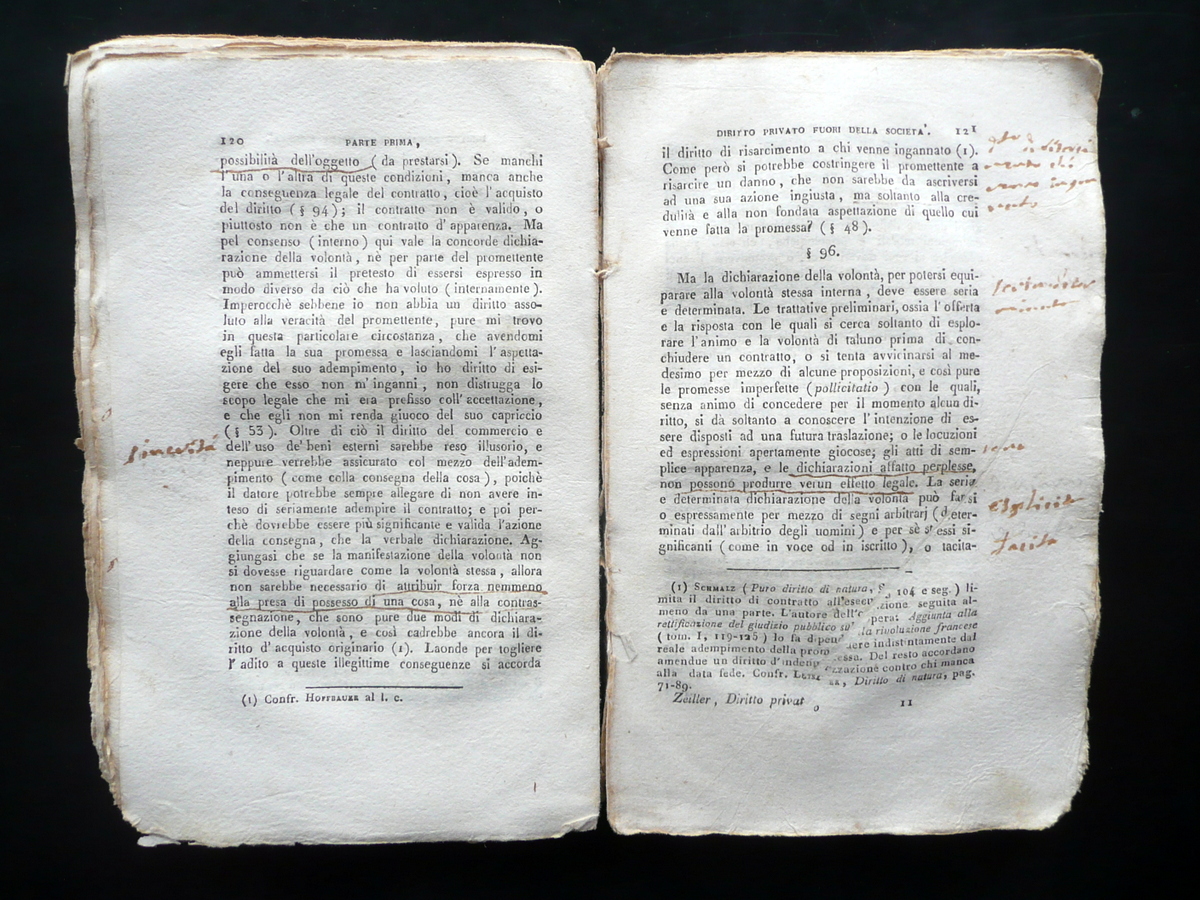 120
PARTE PRIMA,
possibilità dell'oggetto (da prestarsi). Se manchi
l'una o l'altra di queste condizioni, manca anche
la conseguenza legale del contratto, cioè l'acquisto
del diritto (§ 94); il contratto non è valido, o
piuttosto non è che un contratto d'apparenza. Ma
pel consenso (interno) qui vale la concorde dichia-
razione della volontà, nè per parte del promettente
può ammettersi il pretesto di essersi espresso in
modo diverso da ciò che ha voluto (internamente).
Imperocchè sebbene io non abbia un diritto asso-
luto alla veracità del promettente, pure mi trovo
in questa particolare circostanza, che avendomi
egli fatta la sua promessa e lasciandomi l'aspetta-
zione del suo adempimento, io ho diritto di esi-
gere che esso non m'inganni, non distrugga lo
scopo legale che mi era prefisso coll'accettazione,
e che egli non mi renda giuoco del suo capriccio
(§ 53). Oltre di ciò il diritto del commercio e
dell'uso de' beni esterni sarebbe reso illusorio, e
neppure verrebbe assicurato col mezzo dell'adem-
pimento (come colla consegna della cosa), poichè
il datore potrebbe sempre allegare di non avere in-
teso di seriamente adempire il contratto; e poi per-
chè dovrebbe essere più significante e valida l'azione
della consegna, che la verbale dichiarazione. Ag-
giungasi che se la manifestazione della volontà non
si dovesse riguardare come la volontà stessa, allora
non sarebbe necessario di attribuir forza nemmeno
alla presa di possesso di una cosa, nè alla contras-
segnazione, che sono pure due modi di dichiara-
zione della volontà, e così cadrebbe ancora il di-
ritto d'acquisto originario (1). Laonde per togliere
l'adito a queste illegittime conseguenze si accorda
(1) Confr. HOFFBAUER al l. c.
sincerità
DIRITTO PRIVATO FUORI DELLA SOCIETA'. 121
il diritto di risarcimento a chi venne ingannato (1).
Come però si potrebbe costringere il promettente a
risarcire un danno, che non sarebbe da ascriversi
ad una sua azione ingiusta, ma soltanto alla cre-
dulità e alla non fondata aspettazione di quello cui
venne fatta la promessa? (§ 48).
§ 96.
Ma la dichiarazione della volontà, per potersi equi-
parare alla volontà stessa interna, deve essere seria
e determinata. Le trattative preliminari, ossia l'offerta
e la risposta con le quali si cerca soltanto di esplo-
rare l'animo e la volontà di taluno prima di con-
chiudere un contratto, o si tenta avvicinarsi al me-
desimo per mezzo di alcune proposizioni, e così pure
le promesse imperfette (pollicitatio) con le quali,
senza animo di concedere per il momento alcun di-
ritto, si dà soltanto a conoscere l'intenzione di es-
sere disposti ad una futura traslazione; o le locuzioni
ed espressioni apertamente giocose; gli atti di sem-
plice apparenza, e le dichiarazioni affatto perplesse,
non possono produrre verun effetto legale. La seria
e determinata dichiarazione della volontà può farsi
o espressamente per mezzo di segni arbitrarj (deter-
minati dall'arbitrio degli uomini) e per sè stessi si-
gnificanti (come in voce od in iscritto), o tacita-
(1) SCHMALZ (Puro diritto di natura, § 104 e seg.) li-
mita il diritto di contratto all'esecuzione seguita al-
meno da una parte. L'autore dell'opera: Aggiunta alla
rettificazione del giudizio pubblico sulla rivoluzione francese
(tom. I, 119-125) lo fa dipendere indistintamente dal
reale adempimento della promessa. Del resto accordano
amendue un diritto d'indennizzazione contro chi manca
alla data fede. Confr. , Diritto di natura, pag.
71-89.
Zeiller, Diritto privato
11
esplicita
tacita